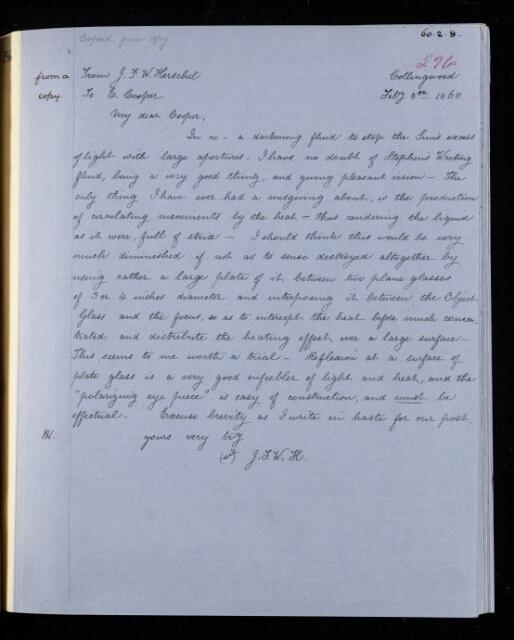 Copied from copy
60.2.8.
276
from a From J. F. W. Herschel Collingwood
copy. To E. Cooper Feby 8th 1860
My dear Cooper,
In re - a darkening fluid to stop the Sun's excess
of light with large apertures. I have no doubt of Stephen's Writing
fluid, being a very good thing and giving pleasant vision - The
only thing I have ever had a misgiving about, is the production
of circulating movements by the heat - thus rendering the liquid
as it were, full of striæ - I should think this would be very
much diminished if not as to sense destroyed altogether by
using rather a large plate of it between two plane glasses
of 3 or 4 inches diameter and interposing it between the Object
Glass and the focus, so as to intercept the heat before much concen-
trated and distribute the heating effect over a large surface -
This seems to me worth a trial - Reflexion at a surface of
plate glass is a very good enfeebler of light and heat, and the
"polarizing eye piece" is easy of construction, and must be
effectual. Excuse brevity as I write in haste for our post.
yours very try
J. F. W. H.